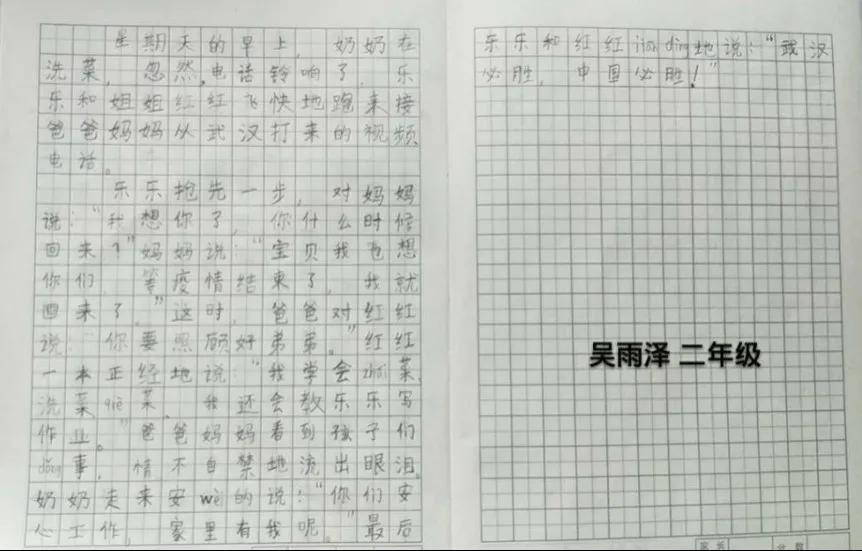 星期天的早上，奶奶在
洗菜，忽然，电话铃响了，乐
乐和姐姐红红飞快地跑来接
爸爸妈妈从武汉打来的视频
电话。
乐乐抢先一步，对妈妈
说：“我想你了，你什么时候
回来？”妈妈说：“宝贝我也想
你们，等疫情结束了，我就
回来了。”这时，爸爸对红红
说：“你要照顾好弟弟。”红红
一本正经地说：“我学会zhāi菜，
洗菜qiē菜。我还会教乐乐写
作业。”爸爸妈妈看到孩子们
dǒng事，情不自禁地流出眼泪。
奶奶走来安wèi的说：“你们安
心工作，家里有我呢。”最后
乐乐和红红jiān dìng地说：“武汉
必胜，中国必胜！”
吴雨泽 二年级
家长
分数